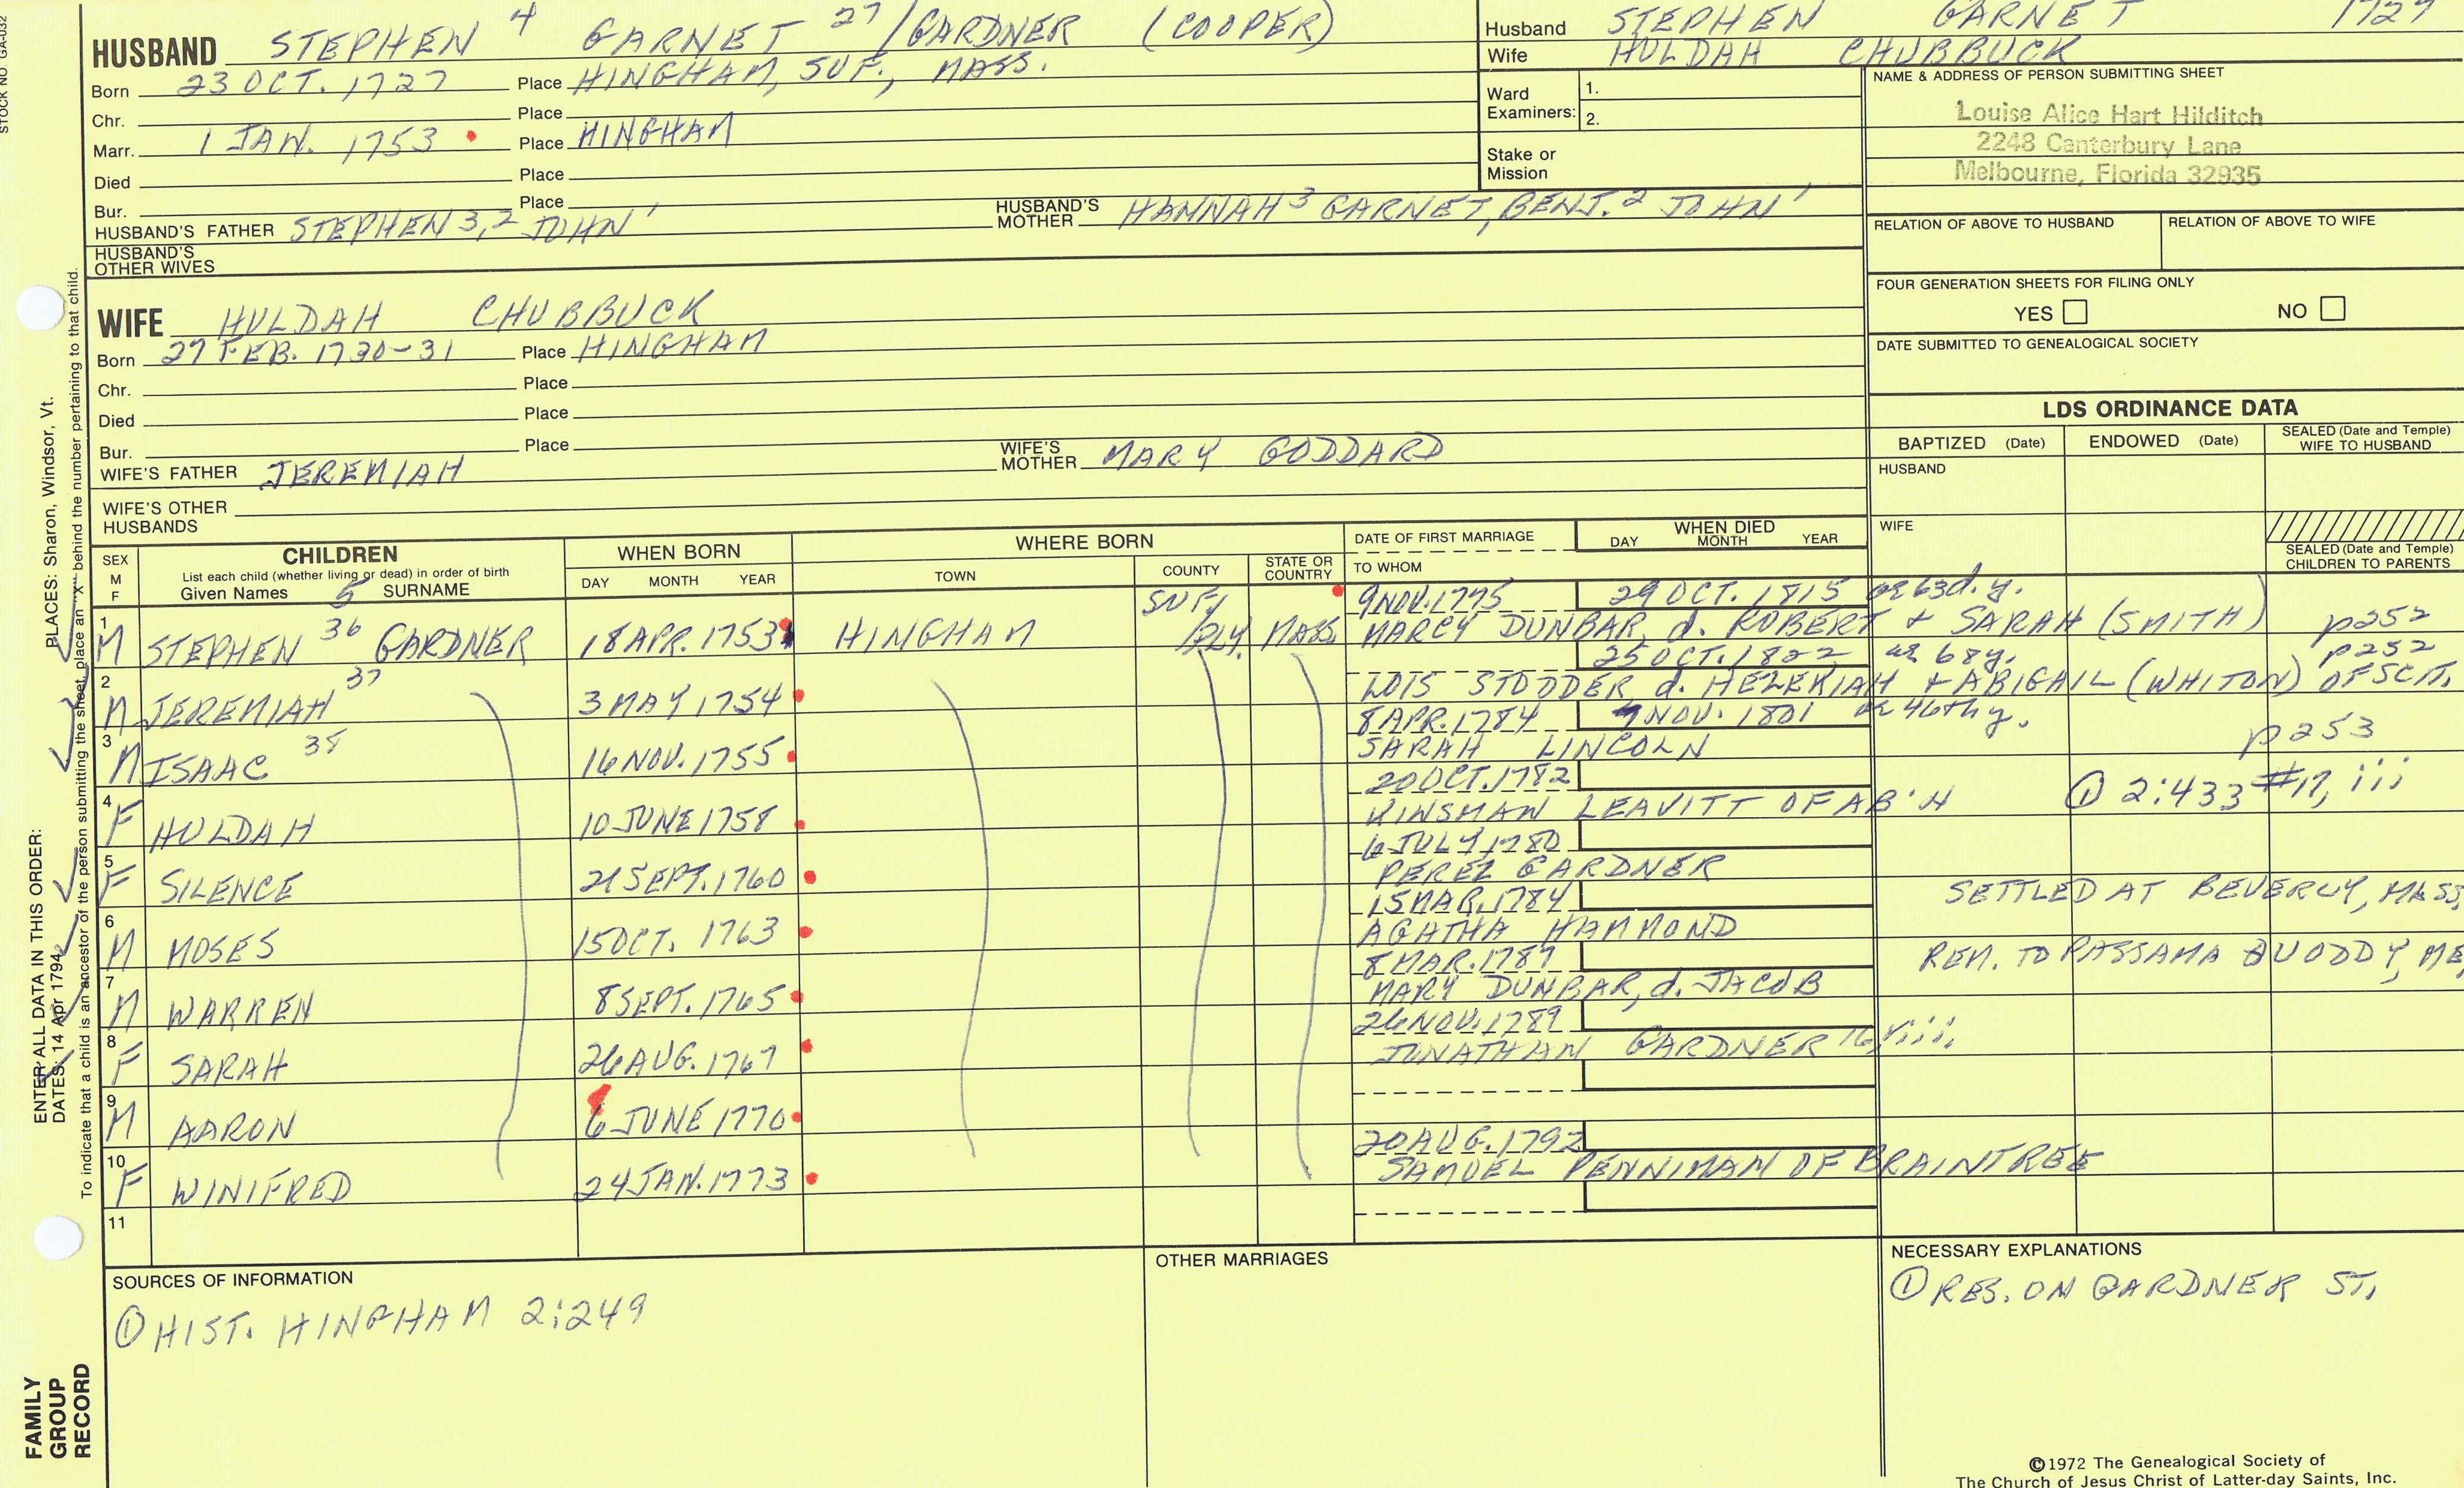 STOCK NO. GA-032
HUSBAND STEPHEN 4 GARNET 27 / GARDNER (COOPER)
Born 23 OCT. 1727 Place HINGHAM, SUF., MASS.
Chr. Place
Marr. 1 JAN. 1753 Place HINGHAM
Died Place
Bur. Place
HUSBAND'S FATHER STEPHEN 3,2 JOHN 1 HUSBAND'S MOTHER HANNAH 3 GARNET, BENJ. 2 JOHN 1
HUSBAND'S OTHER WIVES
Husband STEPHEN GARNET 1727
Wife HULDAH CHUBBUCK
Ward Examiners: 1.
2.
Stake or Mission
NAME & ADDRESS OF PERSON SUBMITTING SHEET
Louise Alice Hart Hilditch
2248 Canterbury Lane
Melbourne, Florida 32935
RELATION OF ABOVE TO HUSBAND RELATION OF ABOVE TO WIFE
FOUR GENERATION SHEETS FOR FILING ONLY
YES NO
DATE SUBMITTED TO GENEALOGICAL SOCIETY
WIFE HULDAH CHUBBUCK
Born 27 FEB. 1730-31 Place HINGHAM
Chr. Place
Died Place
Bur. Place
WIFE'S FATHER JEREMIAH WIFE'S MOTHER MARY GODDARD
WIFE'S OTHER HUSBANDS
LDS ORDINANCE DATA
BAPTIZED (Date) ENDOWED (Date) SEALED (Date and Temple) WIFE TO HUSBAND
HUSBAND
WIFE
SEALED (Date and Temple) CHILDREN TO PARENTS
SEX M F
CHILDREN
List each child (whether living or dead) in order of birth
Given Names 5 SURNAME
WHEN BORN
DAY MONTH YEAR
WHERE BORN
TOWN COUNTY STATE OR COUNTRY
DATE OF FIRST MARRIAGE
TO WHOM
WHEN DIED
DAY MONTH YEAR
9 NOV. 1775 29 OCT. 1815 ae 63d. y.
1 M STEPHEN 36 GARDNER 18 APR. 1753 HINGHAM SUF/ PLY. MASS. MARCY DUNBAR, d. ROBERT + SARAH (SMITH) p252
25 OCT. 1822 ae 68y. p252
2 M JEREMIAH 37 3 MAY 1754 LOIS STODDER, d. HEZEKIAH + ABIGAIL (WHITON) OF SCIT.
8 APR. 1784 NOV. 1801 ae 46th y.
3 M ISAAC 38 16 NOV. 1755 SARAH LINCOLN p253
20 OCT. 1782
4 F HULDAH 10 JUNE 1758 KINSMAN LEAVITT OF AB'H ① 2:433 #17, iii
6 JULY 1780
5 F SILENCE 21 SEPT. 1760 PEREZ GARDNER
15 MAR. 1784 SETTLED AT BEVERLY, MASS.
6 M MOSES 15 OCT. 1763 AGATHA HAMMOND
8 MAR. 1789 REM. TO PASSAMAQUODDY, ME
7 M WARREN 8 SEPT. 1765 MARY DUNBAR, d. JACOB
26 NOV. 1789
8 F SARAH 26 AUG. 1767 JONATHAN GARDNER 16, viii,
9 M AARON 6 JUNE 1770
20 AUG. 1792
10 F WINIFRED 24 JAN. 1773 SAMUEL PENNIMAN OF BRAINTREE
11
SOURCES OF INFORMATION
① HIST. HINGHAM 2:249
OTHER MARRIAGES
NECESSARY EXPLANATIONS
① RES. ON GARDNER ST.
ENTER ALL DATA IN THIS ORDER:
PLACES: Sharon, Windsor, Vt.
DATES: 14 Apr 1794
To indicate that a child is an ancestor of the person submitting the sheet, place an "X" behind the number pertaining to that child.
FAMILY GROUP RECORD
©1972 The Genealogical Society of
The Church of Jesus Christ of Latter-day Saints, Inc.